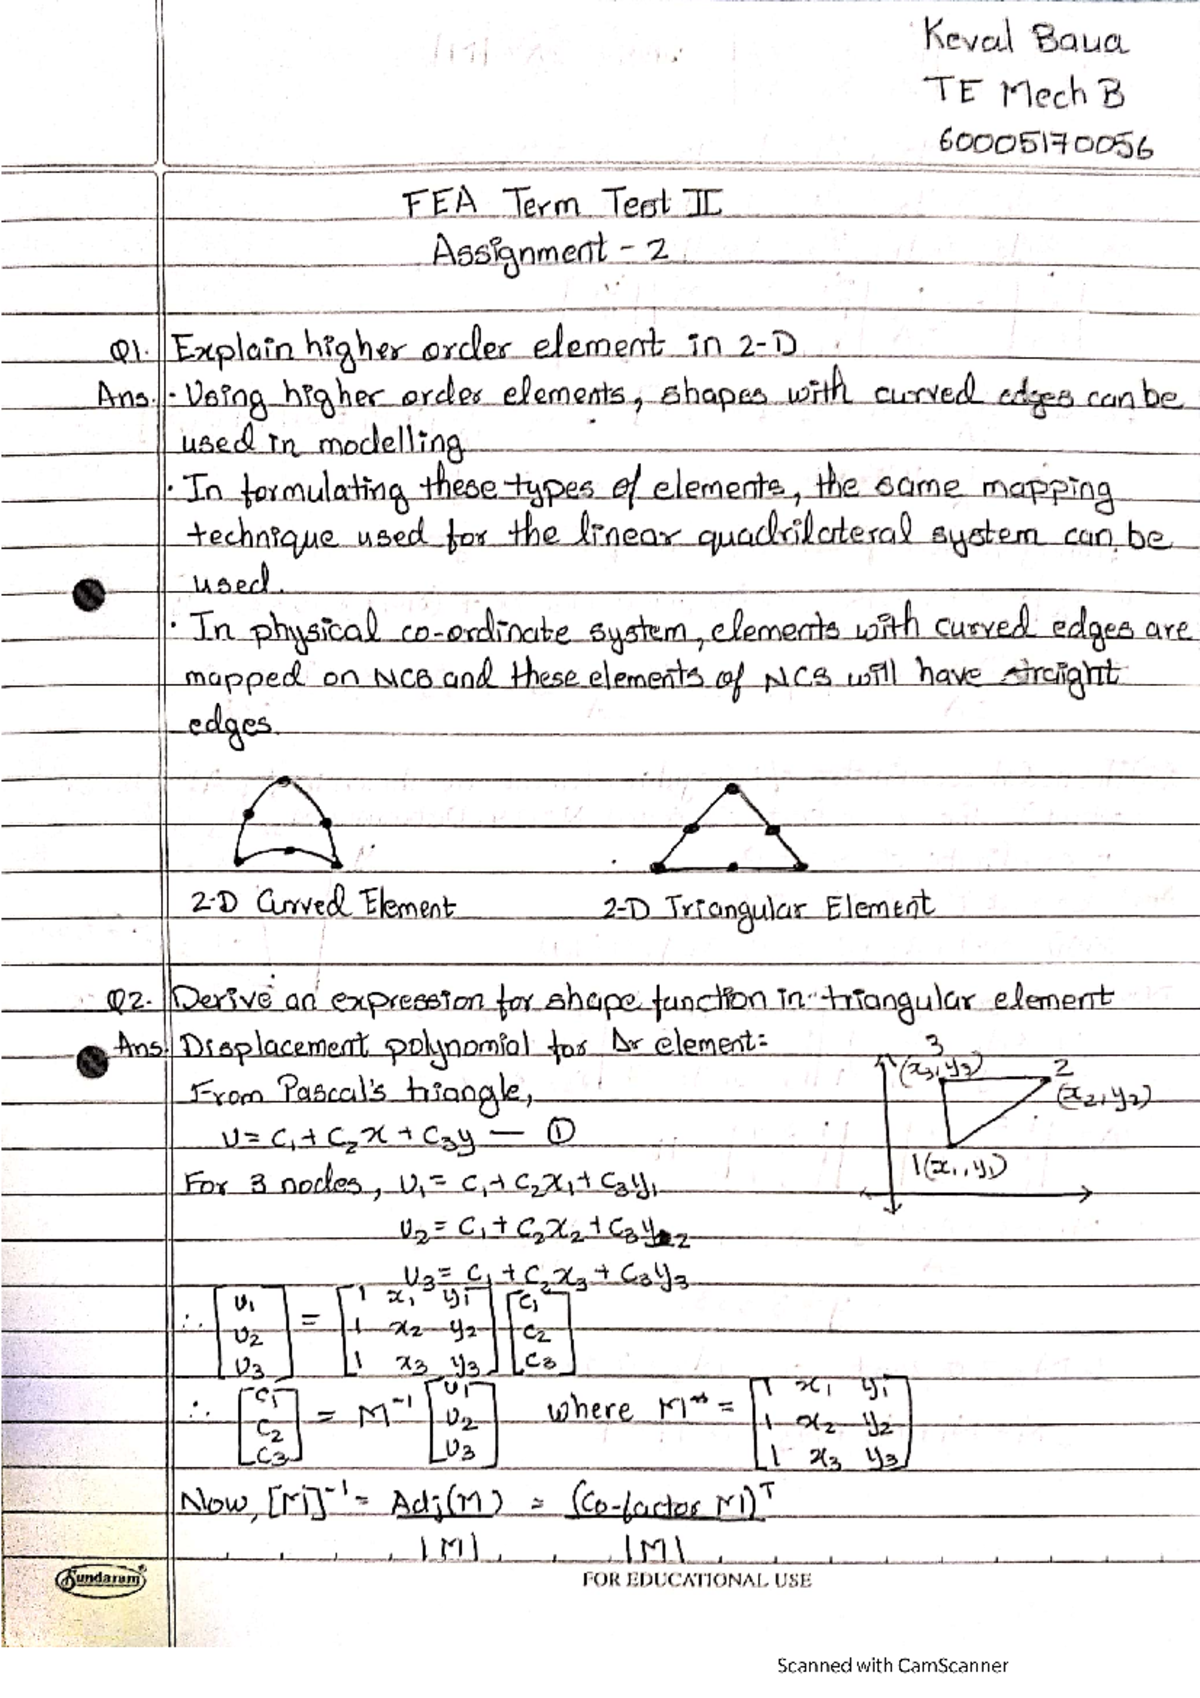 Keval Baua
TE Mech B
60005170056
FEA Term Test II
Assignment - 2
Q1. Explain higher order element in 2-D
Ans. · Using higher order elements, shapes with curved edges can be
used in modelling
· In formulating these types of elements, the same mapping
technique used for the linear quadrilateral system can be
used.
· In physical co-ordinate system, elements with curved edges are
mapped on NCS and these elements of NCS will have straight
edges.
2-D Curved Element 2-D Triangular Element
Q2. Derive an expression for shape function in triangular element
Ans. Displacement polynomial for Δr element:
From Pascal's triangle,
U = C₁ + C₂x + C₃y — ①
3
(x₃, y₃)
2
(x₂, y₂)
1(x₁, y₁)
For 3 nodes, U₁ = C₁ + C₂x₁ + C₃y₁
U₂ = C₁ + C₂x₂ + C₃y₂
U₃ = C₁ + C₂x₃ + C₃y₃
∴ [U₁ U₂ U₃] = [1 x₁ y₁ 1 x₂ y₂ 1 x₃ y₃] [C₁ C₂ C₃]
∴ [C₁ C₂ C₃] = M⁻¹ [U₁ U₂ U₃] where M = [1 x₁ y₁ 1 x₂ y₂ 1 x₃ y₃]
Now, [M]⁻¹ = Adj(M) / |M| = (Co-factor M)ᵀ / |M|
Sundaram
FOR EDUCATIONAL USE
Scanned with CamScanner